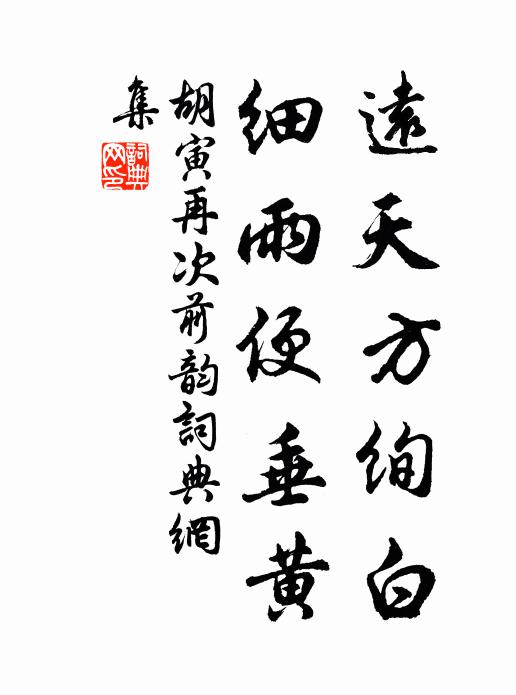 遠天方絢白
細雨便垂黄
胡寅再次前韵詞典網
集
詞典
网印